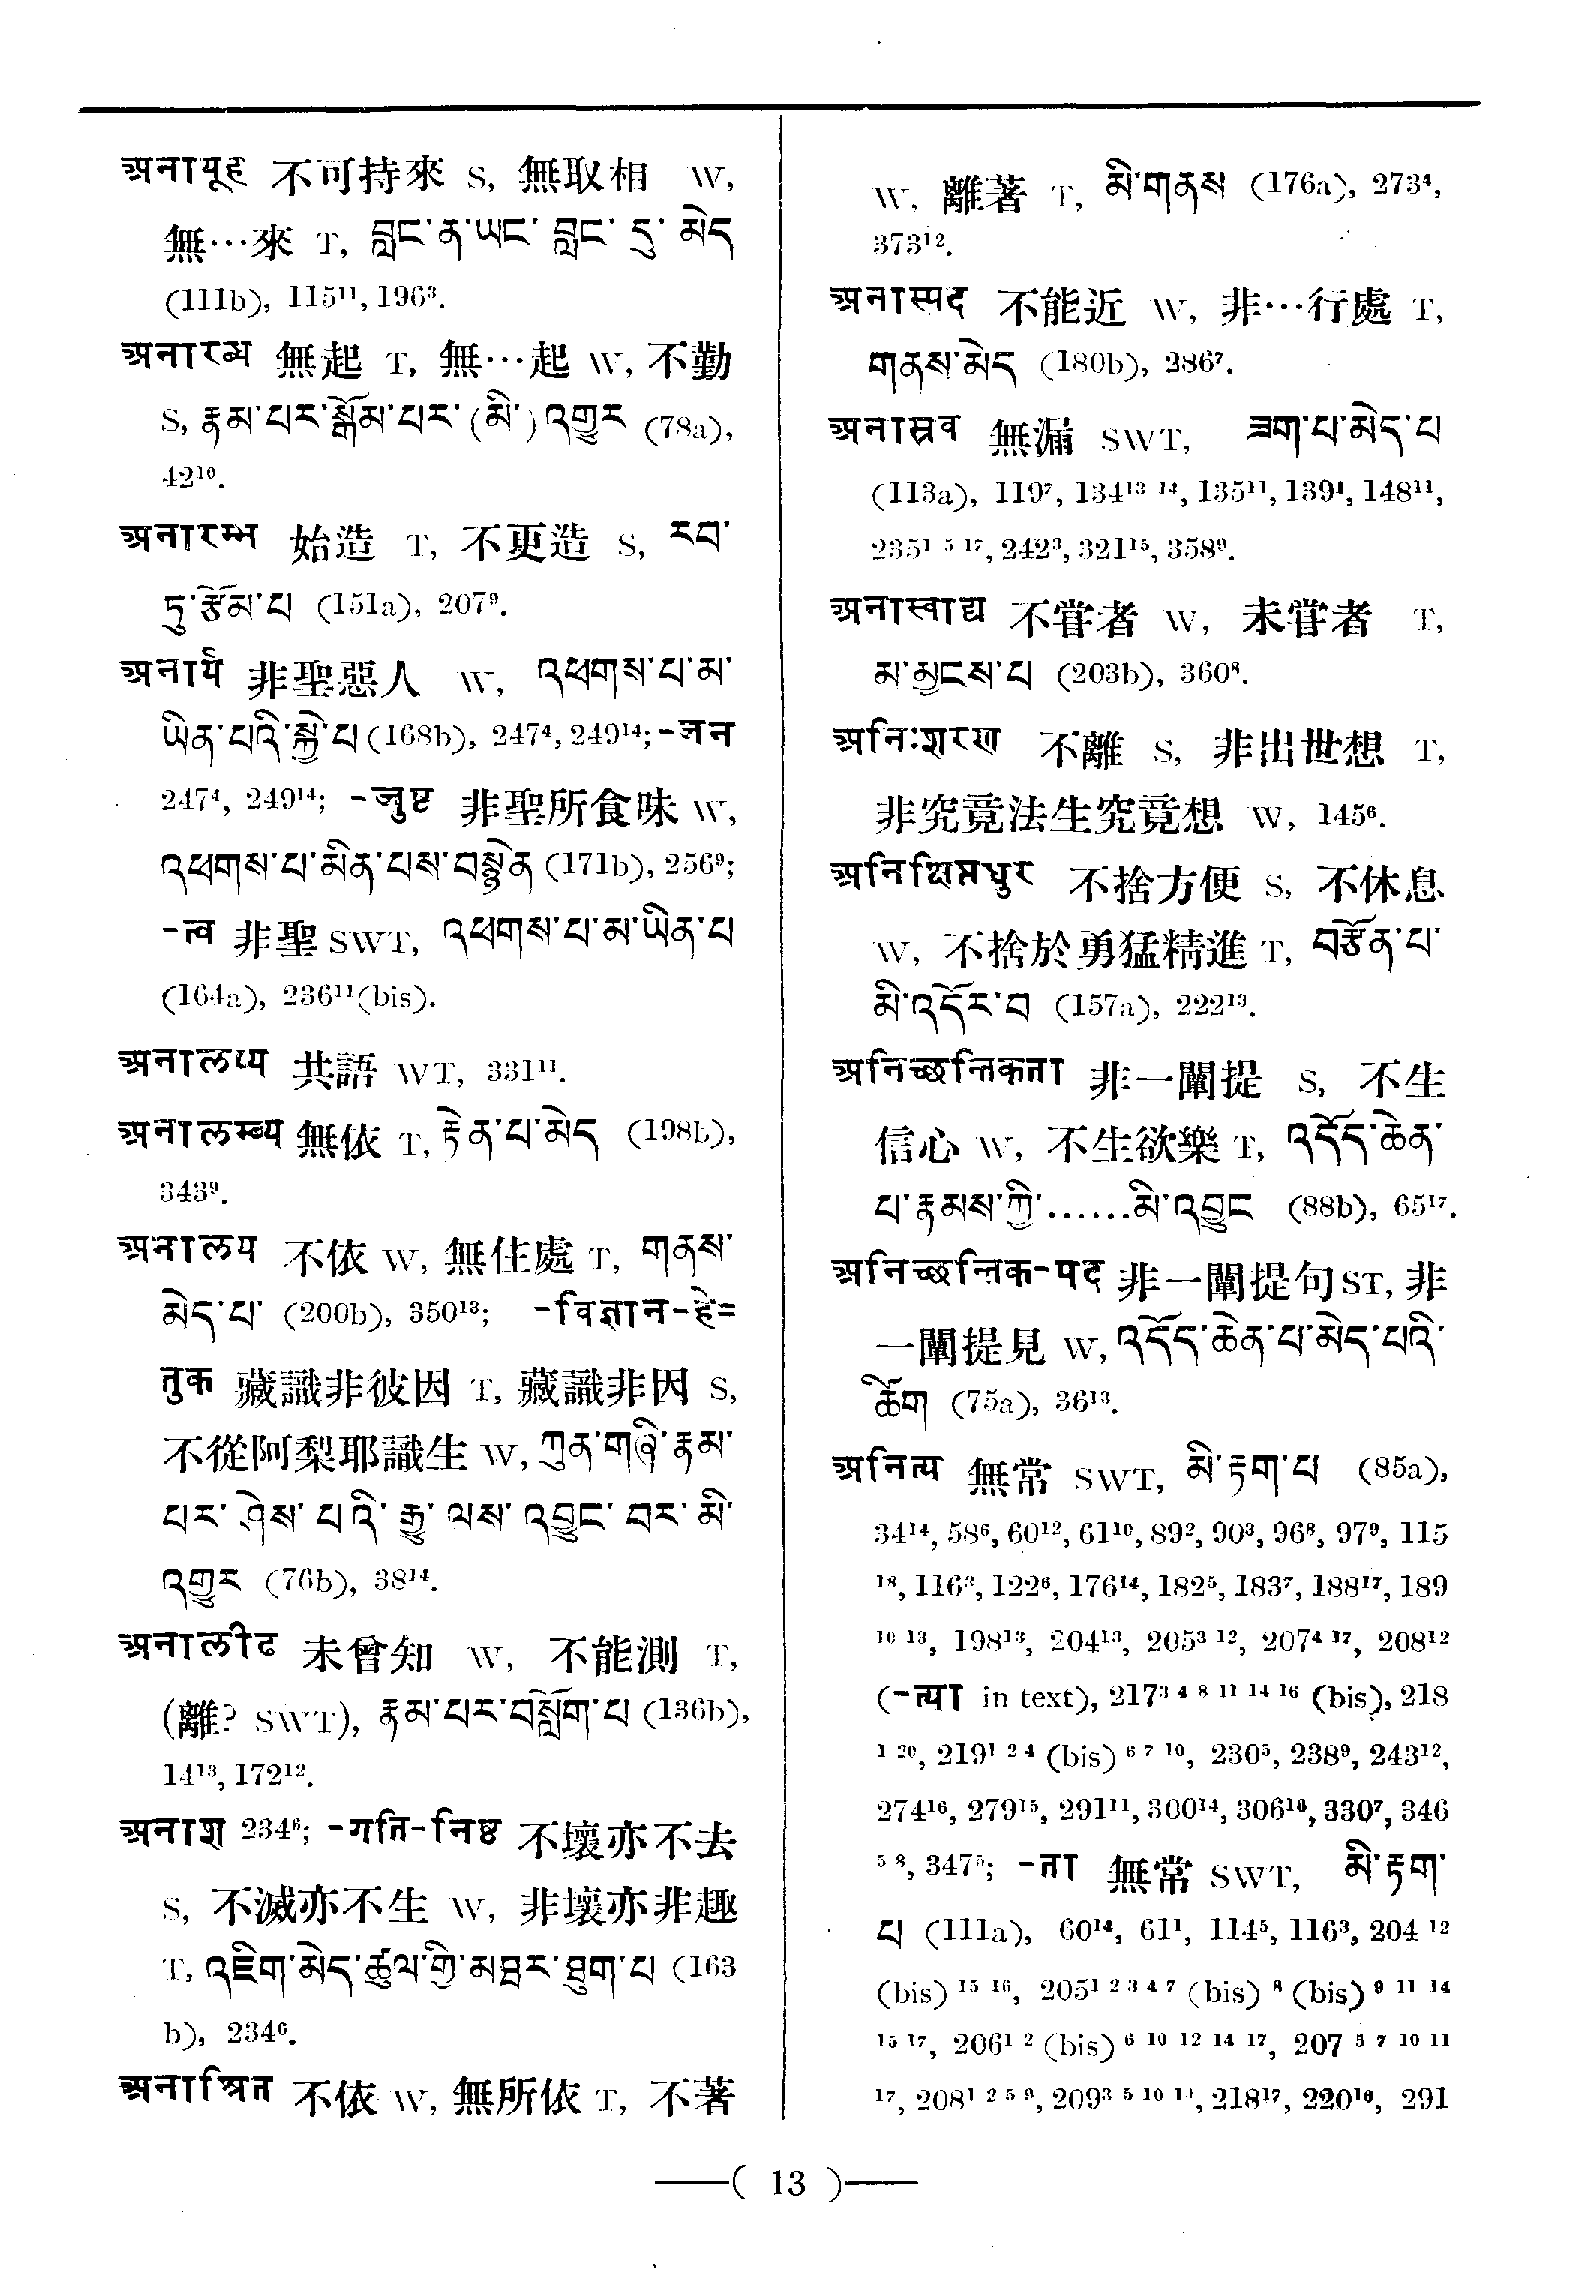 अनायूह 不可持來 S, 無取相 W,
無…來 T, བླང་ན་ཡང་ བླང་ དུ་ མེད
(111b), 115¹¹, 196³.
अनारब्ध 無起 T, 無…起 W, 不勤
S, རྣམ་པར་སྒོམ་པར་(མི་)འགྱུར (78a),
42¹⁰.
अनारम्भ 始造 T, 不更造 S, རབ་
ཏུ་རྩོམ་པ (151a), 207⁹.
अनार्य 非聖惡人 W, འཕགས་པ་མ་
ཡིན་པའི་སྐྱེ་པ (168b), 247⁴, 249¹⁴; -जन
247⁴, 249¹⁴; -जुष्ट 非聖所食味 W,
འཕགས་པ་མིན་པས་བསྟེན (171b), 256⁹;
-त्व 非聖 SWT, འཕགས་པ་མ་ཡིན་པ
(164a), 236¹¹(bis).
अनालप्य 共語 WT, 331¹¹.
अनालम्ब्य 無依 T, རྟེན་པ་མེད (198b),
343⁹.
अनालय 不依 W, 無住處 T, གནས་
མེད་པ་ (200b), 350¹³; -विज्ञान-हे=
तुक 藏識非彼因 T, 藏識非因 S,
不從阿梨耶識生 W, ཀུན་གཞི་རྣམ་
པར་ ཤེས་ པའི་ རྒྱུ་ ལས་ འབྱུང་ བར་ མི་
འགྱུར (76b), 38¹⁴.
अनालीढ 未曾知 W, 不能測 T,
(離? SWT), རྣམ་པར་བསློག་པ (136b),
14¹³, 172¹².
अनाश 234⁶; -गति-निष्ठ 不壞亦不去
S, 不滅亦不生 W, 非壞亦非趣
T, འཇིག་མེད་ཚུལ་གྱི་མཐར་ཐུག་པ (163
b), 234⁶.
अनाश्रित 不依 W, 無所依 T, 不著
W, 離著 T, མི་གནས (176a), 273⁴,
373¹².
अनास्पद 不能近 W, 非…行處 T,
གནས་མེད (180b), 286⁷.
अनास्रव 無漏 SWT, ཟག་པ་མེད་པ
(113a), 119⁷, 134¹³ ¹⁴, 135¹¹, 139⁴, 148¹¹,
235¹ ⁵ ¹⁷, 242³, 321¹⁵, 358⁹.
अनास्वाद्य 不甞者 W, 未甞者 T,
མ་མྱངས་པ (203b), 360⁸.
अनिःशरण 不離 S, 非出世想 T,
非究竟法生究竟想 W, 145⁶.
अनिक्षिप्तधुर 不捨方便 S, 不休息
W, 不捨於勇猛精進 T, བརྩོན་པ་
མི་འདོར་བ (157a), 222¹³.
अनिच्छन्तिकता 非一闡提 S, 不生
信心 W, 不生欲樂 T, འདོད་ཆེན་
པ་རྣམས་ཀྱི་......མི་འབྱུང (88b), 65¹⁷.
अनिच्छन्तिक-पद 非一闡提句ST, 非
一闡提見 W, འདོད་ཆེན་པ་མེད་པའི་
ཚིག (75a), 36¹³.
अनित्य 無常 SWT, མི་རྟག་པ (85a),
34¹⁴, 58⁶, 60¹², 61¹⁰, 89², 90³, 96⁸, 97⁹, 115
¹⁸, 116³, 122⁶, 176¹⁴, 182⁵, 183⁷, 188¹⁷, 189
¹⁰ ¹³, 198¹³, 204¹³, 205³ ¹², 207⁴ ¹⁷, 208¹²
(-त्या in text), 217³ ⁴ ⁸ ¹¹ ¹⁴ ¹⁶ (bis), 218
¹ ²⁰, 219¹ ² ⁴ (bis) ⁶ ⁷ ¹⁰, 230⁵, 238⁹, 243¹²,
274¹⁶, 279¹⁵, 291¹¹, 300¹⁴, 306¹⁰, 330⁷, 346
⁵ ⁸, 347⁵; -ता 無常 SWT, མི་རྟག་
པ (111a), 60¹⁴, 61¹, 114⁵, 116³, 204 ¹²
(bis) ¹⁵ ¹⁶, 205¹ ² ³ ⁴ ⁷ (bis) ⁸ (bis) ⁹ ¹¹ ¹⁴
¹⁵ ¹⁷, 206¹ ² (bis) ⁶ ¹⁰ ¹² ¹⁴ ¹⁷, 207 ⁵ ⁷ ¹⁰ ¹¹
¹⁷, 208¹ ² ⁵ ⁹, 209³ ⁵ ¹⁰ ¹¹, 218¹⁷, 220¹⁰, 291
( 13 )